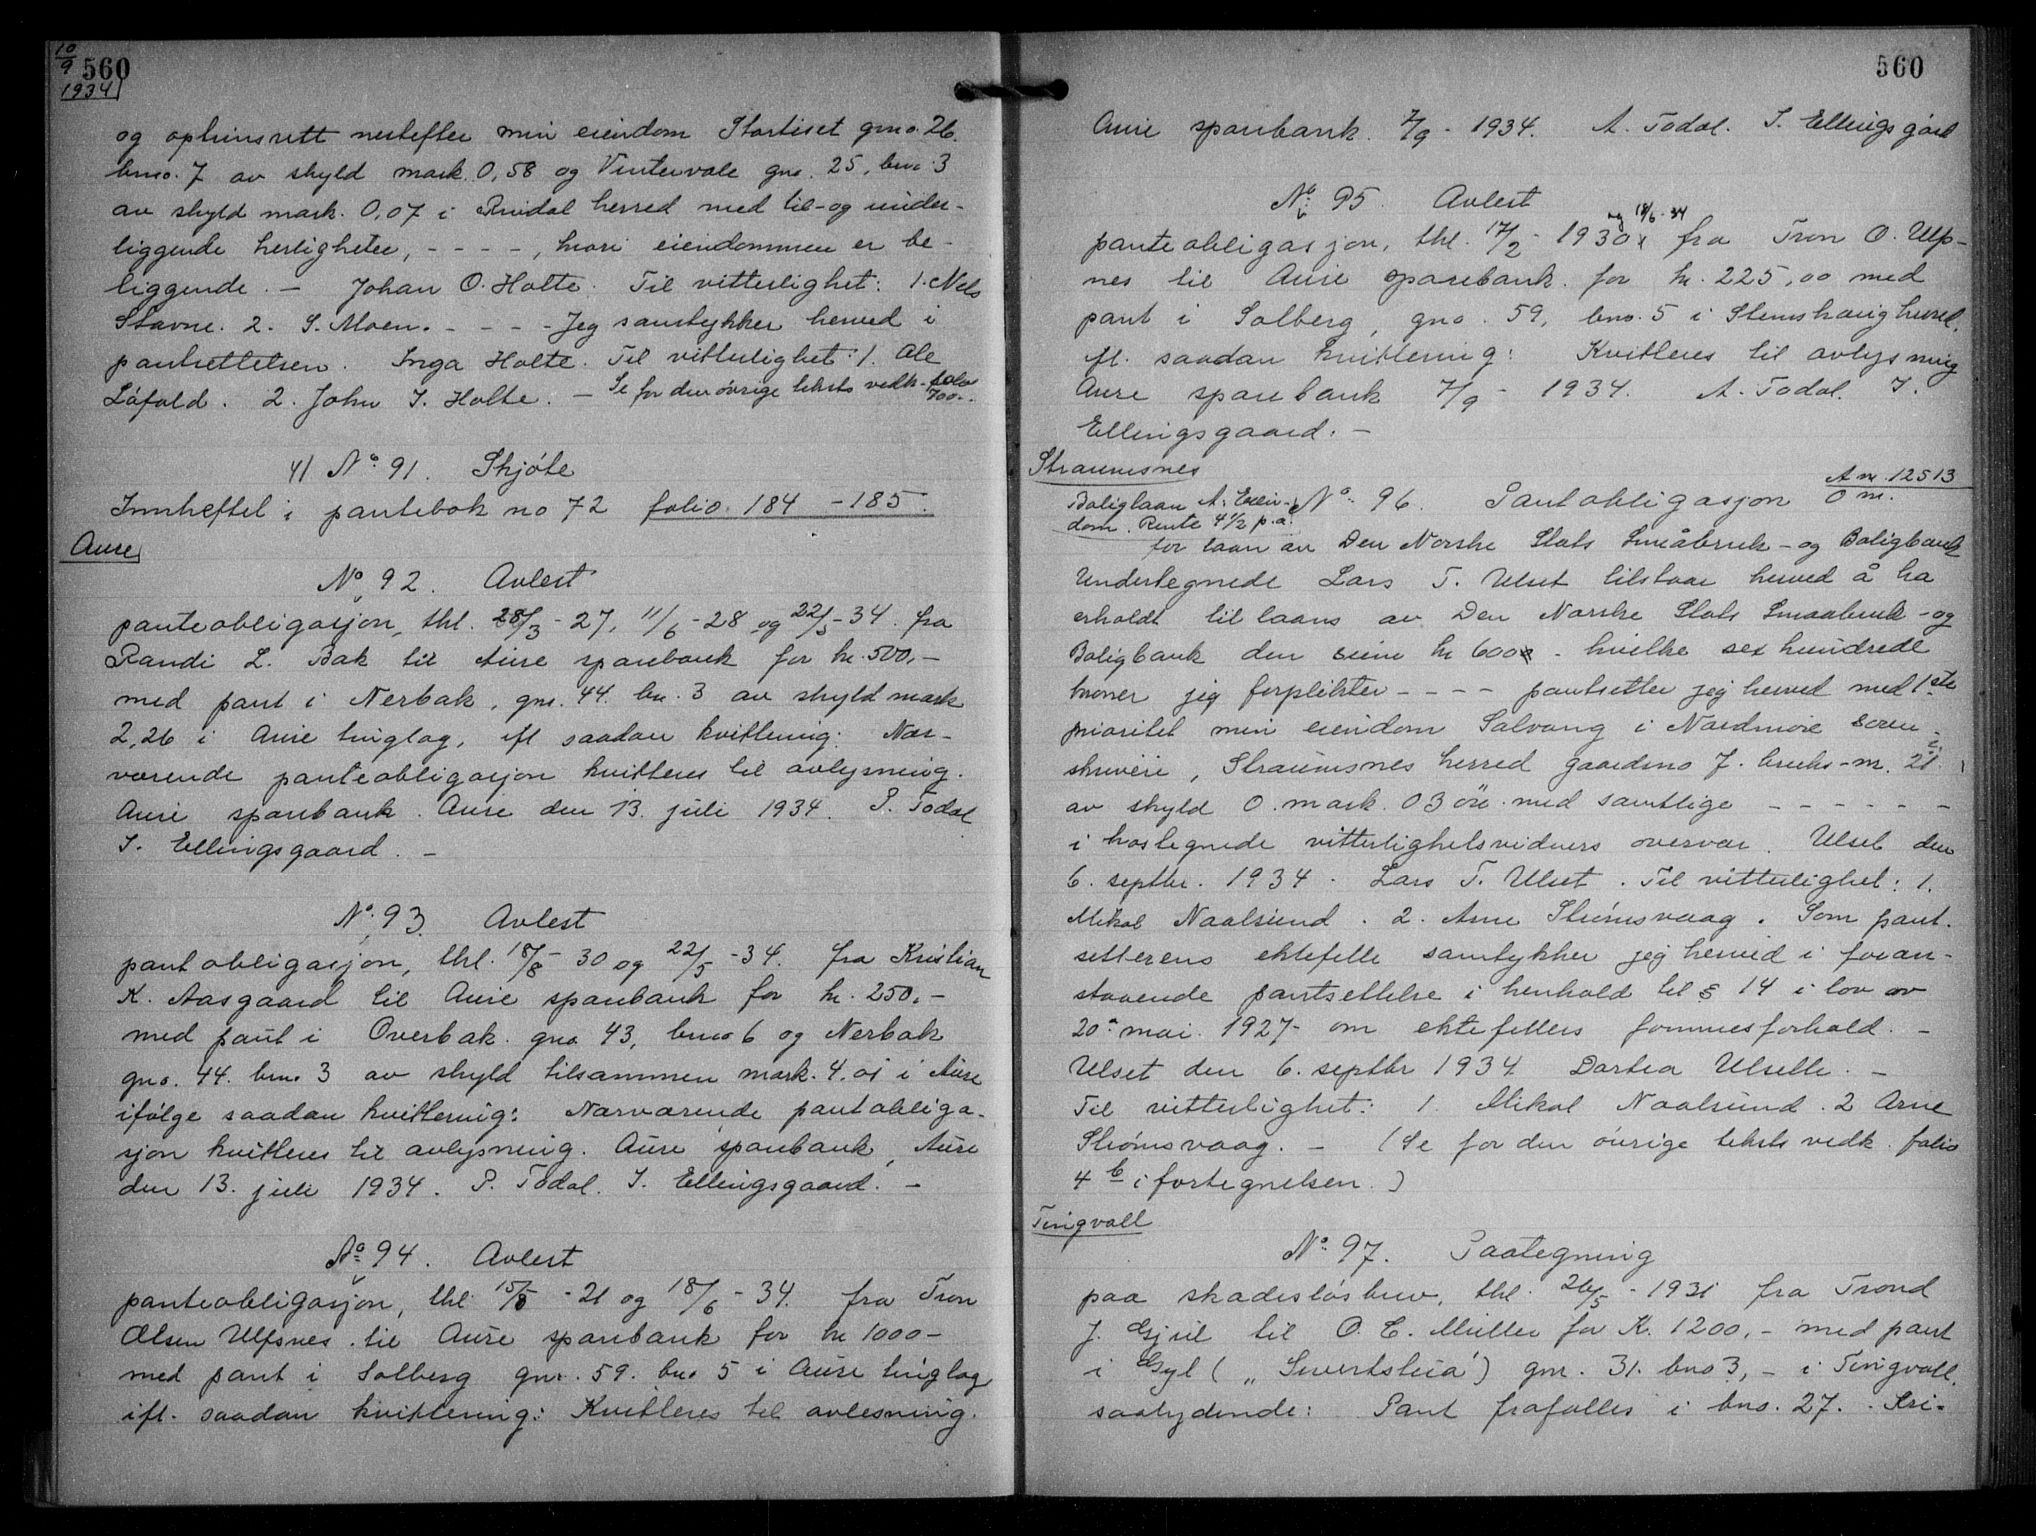 10/9
1934
560
og optrinsrett nestefter min eiendom Stortiset gno. 26.
bno. 7 av skyld mark 0,58 og Vintervole gno. 25, bno 3
av skyld mark. 0,07 i Rindal herred med til- og under-
liggende herligheter, - - - -, hvori eiendommen er be-
liggende. - Johan O. Holte. Til vitterlighet: 1. Nels
Stavne. 2. S. Moen. - - - - Jeg samtykker herved i
pantsettelsen. Inga Holte. Til vitterlighet: 1. Ole
Løfald. 2. John J. Holte. - Se for den øvrige teksts vedk. folio
700.
4) No 91. Skjøte
Innheftet i pantebok no 72 folio. 184 - 185.
Aure
No 92. Avlest
panteobligasjon, thl. 28/3 - 27, 11/6 - 28 og 22/5 - 34. fra
Randi L. Bak til Aure sparebank for kr. 500,-
med pant i Nerbak, gno. 44. bn. 3 av skyld mark
2,26 i Aure tinglag, ifl saadan kvittering: Nær-
værende panteobligasjon kvitteres til avlysning.
Aure sparebank. Aure den 13. juli 1934. P. Todal
I. Ellingsgaard. -
No. 93. Avlest
pantobligasjon, thl. 18/8 - 30 og 22/5 - 34. fra Kristian
K. Aasgaard til Aure sparebank for kr. 250,-
med pant i Overbak. gno. 43, bno 6 og Nerbak
gno. 44. bno 3 av skyld tilsammen mark. 4,01 i Aure
ifølge saadan kvittering: Nærværende pantobliga-
sjon kvitteres til avlysning. Aure sparebank, Aure
den 13. juli 1934. P. Todal. I. Ellingsgaard. -
No 94. Avlest
panteobligasjon, thl 15/8 - 21 og 18/6 - 34. fra Tron
Olsen Ulfsnes. til Aure sparebank for kr 1000-
med pant i Solberg gno. 59. bno 5 i Aure tinglag
ifl. saadan kvittering: Kvitteres til avlesning.
560
Aure sparebank. 7/9 - 1934. A. Todal. I. Ellingsgård
No 95. Avlest
og 18/6-34
panteobligasjon, thl. 17/2 - 1930 x fra Tron O. Ulp-
nes til Aure sparebank. for kr. 225,00 med
pant i Solberg, gno. 59, bno. 5 i Stemshaug herred.
ifl. saadan kvittering: Kvitteres til avlysning
Aure sparebank 7/9 - 1934. A. Todal. I.
Ellingsgaard. -
Straumsnes
A nr. 12513
Boliglaan A. Eien- No 96. Pantobligasjon O m.
dom. Rente 4 1/2 p.a.
for laan av Den Norske Stats Småbruk- og Boligbank
Undertegnede Lars T. Ulset tilstaar herved å ha
erholdt tillaans av Den Norske Stats Smaabruk- og
Boligbank den sum kr 600 - hvilke sex hundrede
kroner jeg forplikter - - - - pantsetter jeg herved med 1ste
prioritet min eiendom Solvang i Nordmøre soren-
skriveri, Straumsnes herred gaardsno 7. bruks-nr. 21.
av skyld 0. mark. 03 øre. med samtlige - - - - - -
i hostegnede vitterlighetsvidners overvær. Ulset den
6. septbr. 1934. Lars T. Ulset. Til vitterlighet: 1.
Mikal Naalsund. 2. Arne Strømsvaag. Som pant-
setterens ektefelle samtykker jeg herved i foran-
staaende pantsettelse i henhold til § 14 i lov av
20 mai 1927 om ektefellers formuesforhold. -
Ulset den 6. septbr 1934 Dortea Ulsett. -
Til vitterlighet: 1. Mikal Naalsund. 2 Arne
Strømsvaag. - (Se for den øvrige teksts vedk. folio
4 b i fortegnelsen.)
Tingvoll
No 97. Paategning
paa skadesløsbrev, thl. 26/5 - 1931 fra Trond
J. Gjul til O. C. Müller for K. 1200,- med pant
i Gyl ("Sivertsteia") gnr. 31. bno 3, - i Tingvoll,
saalydende: Pant frafalles i bno. 27. Kri-